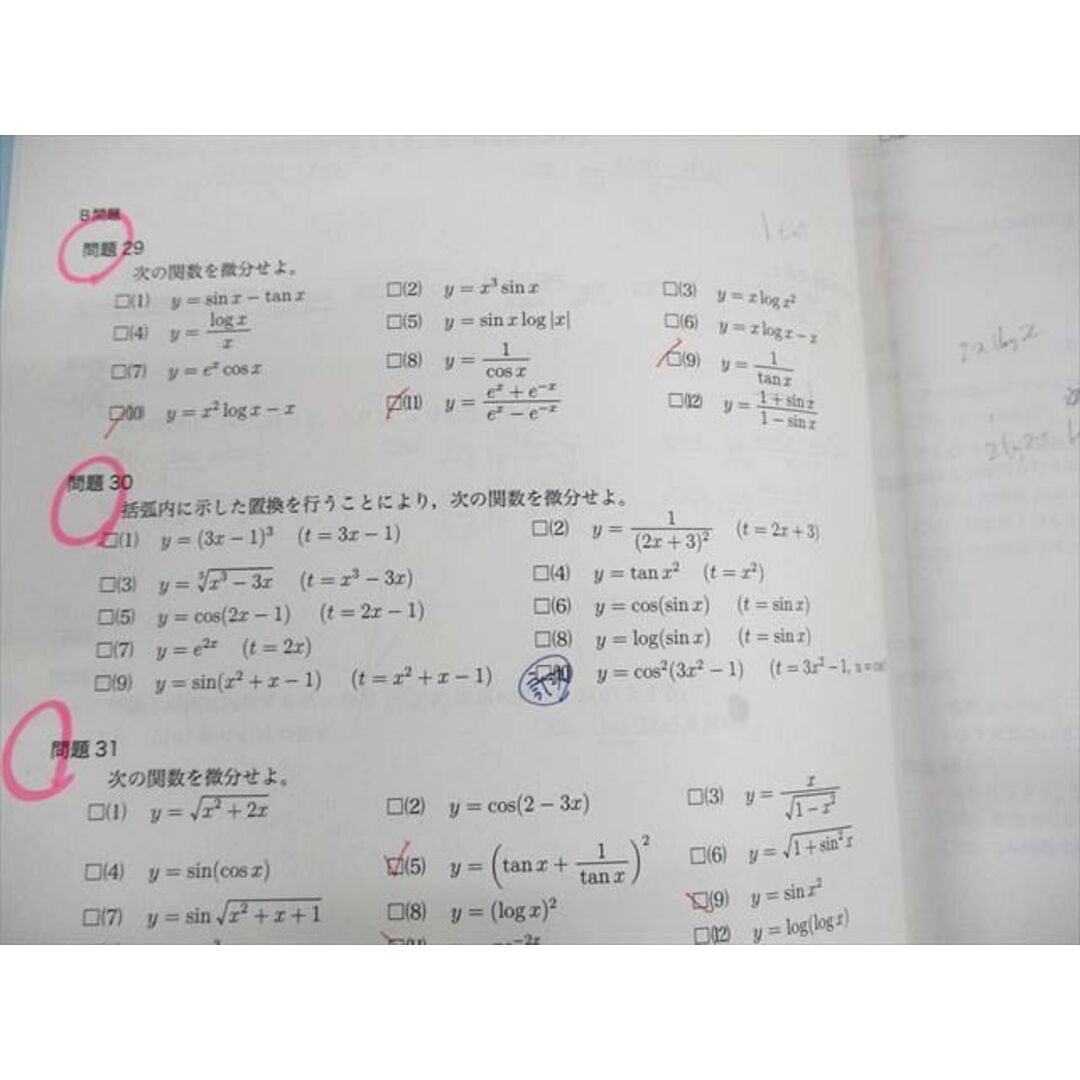 B問題
問題 29
次の関数を微分せよ。
□(1) y = sin x − tan x □(2) y = x³ sin x □(3) y = x log x²
□(4) y = log x / x □(5) y = sin x log |x| □(6) y = x log x − x
□(7) y = eˣ cos x □(8) y = 1 / cos x □(9) y = 1 / tan x
□(10) y = x² log x − x □(11) y = (eˣ + e⁻ˣ) / (eˣ − e⁻ˣ) □(12) y = (1 + sin x) / (1 − sin x)
問題 30
括弧内に示した置換を行うことにより，次の関数を微分せよ。
□(1) y = (3x − 1)³ (t = 3x − 1) □(2) y = 1 / (2x + 3)² (t = 2x + 3)
□(3) y = ∛(x³ − 3x) (t = x³ − 3x) □(4) y = tan x² (t = x²)
□(5) y = cos(2x − 1) (t = 2x − 1) □(6) y = cos(sin x) (t = sin x)
□(7) y = e²ˣ (t = 2x) □(8) y = log(sin x) (t = sin x)
□(9) y = sin(x² + x − 1) (t = x² + x − 1) □(10) y = cos²(3x² − 1) (t = 3x² − 1, u = co
問題 31
次の関数を微分せよ。
□(1) y = √(x² + 2x) □(2) y = cos(2 − 3x) □(3) y = x / √(1 − x²)
□(4) y = sin(cos x) □(5) y = (tan x + 1 / tan x)² □(6) y = √(1 + sin² x)
□(7) y = sin √(x² + x + 1) □(8) y = (log x)² □(9) y = sin x²
□(12) y = log(log x)